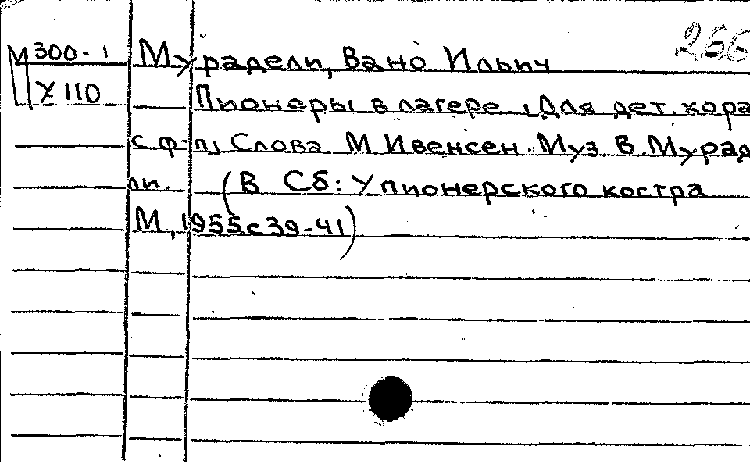 266
М 300-1 Мурадели, Вано Ильич
У 110 Пионеры в лагере, Для дет. хора
с ф-п, Слова М Ивенсен. Муз. В. Мурад
ли. (В Сб: У пионерского костра
М, 1955 с 39-41)